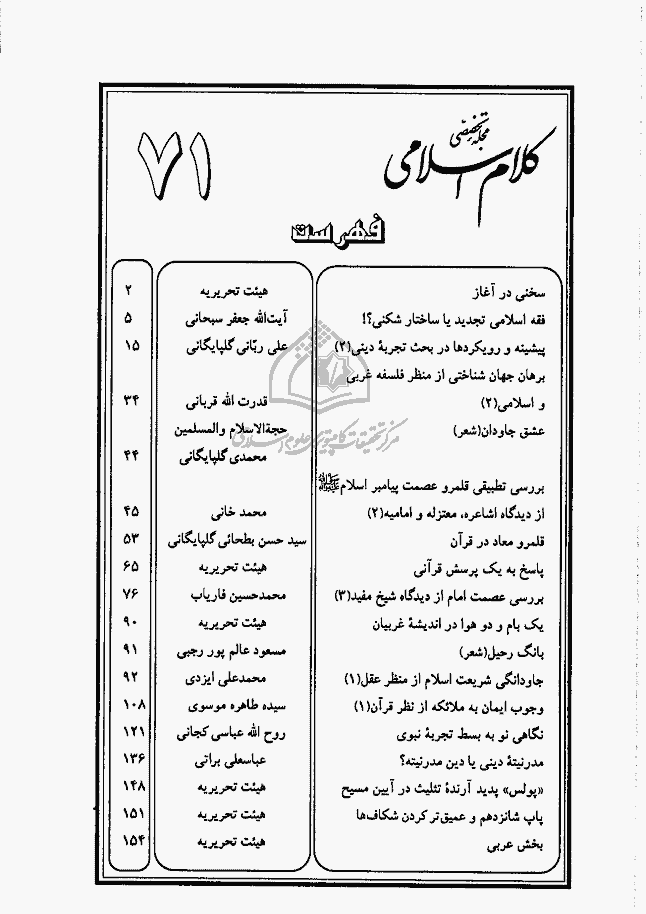 مجله تخصصی
کلام اسلامی
۷۱
فهرست
سخنی در آغاز هیئت تحریریه ۲
فقه اسلامی تجدید یا ساختار شکنی؟! آیت‌الله جعفر سبحانی ۵
پیشینه و رویکردها در بحث تجربهٔ دینی(۲) علی ربّانی گلپایگانی ۱۵
برهان جهان شناختی از منظر فلسفه غربی
و اسلامی(۲) قدرت الله قربانی ۳۴
عشق جاودان(شعر) حجةالاسلام والمسلمین
محمدی گلپایگانی ۴۴
بررسی تطبیقی قلمرو عصمت پیامبر اسلامﷺ
از دیدگاه اشاعره، معتزله و امامیه(۲) محمد خانی ۴۵
قلمرو معاد در قرآن سید حسن بطحائی گلپایگانی ۵۳
پاسخ به یک پرسش قرآنی هیئت تحریریه ۶۵
بررسی عصمت امام از دیدگاه شیخ مفید(۳) محمدحسین فاریاب ۷۶
یک بام و دو هوا در اندیشهٔ غربیان هیئت تحریریه ۹۰
بانگ رحیل(شعر) مسعود عالم پور رجبی ۹۱
جاودانگی شریعت اسلام از منظر عقل(۱) محمدعلی ایزدی ۹۲
وجوب ایمان به ملائکه از نظر قرآن(۱) سیده طاهره موسوی ۱۰۸
نگاهی نو به بسط تجربهٔ نبوی روح الله عباسی کجانی ۱۲۱
مدرنیتهٔ دینی یا دین مدرنیته؟ عباسعلی براتی ۱۳۶
«پولس» پدید آرندهٔ تثلیث در آیین مسیح هیئت تحریریه ۱۴۸
پاپ شانزدهم و عمیق‌تر کردن شکاف‌ها هیئت تحریریه ۱۵۱
بخش عربی هیئت تحریریه ۱۵۴
مرکز تحقیقات کامپیوتری علوم اسلامی